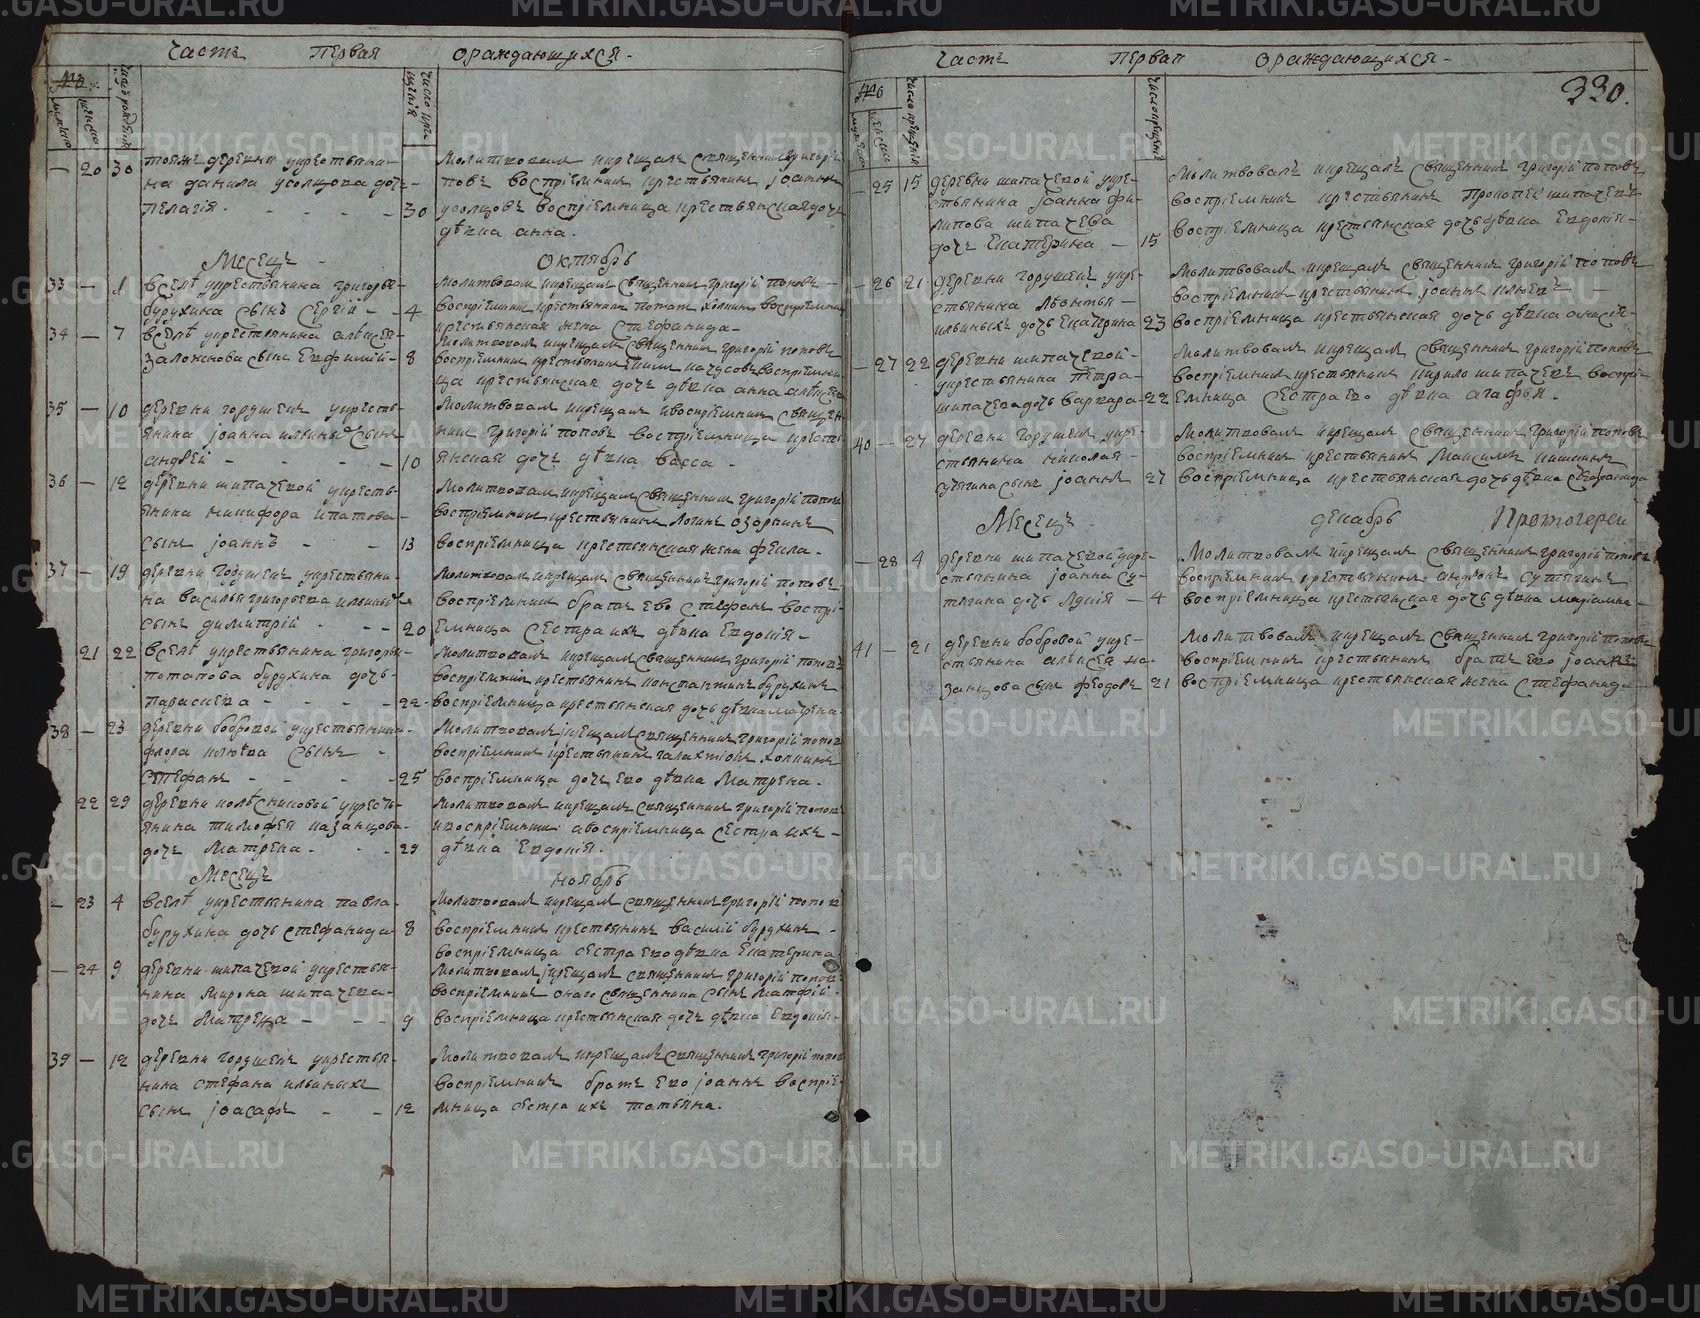 Часть Первая ораждающихся.
— 20 30 тояже деревни укрестьяни-
на данила усолцова дочь
пелагія - - - - 30
Молитвовалъ икрещалъ священникъ григорій
поповъ воспріемникъ крестьянинъ іоаннъ
усолцовъ воспріемница крестьянская дочь
дѣвка анна.
Месецъ Октябрь
33 — 1 вселѣ укрестьянина григорья
бурухина сынъ Сергій - - 4
молитвовалъ икрещалъ священникъ григорій поповъ
воспріемникъ крестьянинъ потапъ холкинъ воспріемница
крестьянская жена Стефанида
34 — 7 вселѣ укрестьянина алексея
заложнова сынъ Евфимій - 8
молитвовалъ икрещалъ священникъ григорій поповъ
воспріемникъ крестьянинъ воспріемни-
ца крестьянская дочь дѣвка анна
35 — 10 деревни горушекъ укресть-
янина іоанна ильиныхъ сынъ
андрей - - - - 10
Молитвовалъ икрещалъ ивоспріемникъ священ-
никъ григорій поповъ воспріемница кресть-
янская дочь дѣвка васса.
36 — 12 деревни шипачевой укресть-
янина никифора ипатова
сынъ іоаннъ - - 13
Молитвовалъ икрещалъ священникъ григорій поповъ
воспріемникъ крестьянинъ логинъ озорнинъ
воспріемница крестьянская жена Фекла.
37 — 19 деревни горушекъ укрестьяни-
на василья григорьева ильиныхъ
сынъ димитрій - - - 20
молитвовалъ икрещалъ священникъ григорій поповъ
воспріемникъ братъ ево Стефанъ воспрі-
емница сестра ихъ дѣвка Евдокія
21 22 вселѣ укрестьянина григорья
потапова бурухина дочь
параскева - - - - 22
молитвовалъ икрещалъ священникъ григорій поповъ
воспріемникъ крестьянинъ константинъ бурухинъ
воспріемница крестьянская дочь дѣвка матрена
38 — 23 деревни бобровой укрестьянина
флора иліева сынъ -
Стефанъ - - - - 25
Молитвовалъ икрещалъ священникъ григорій поповъ
воспріемникъ крестьянинъ галактіонъ холкинъ
воспріемница дочь ево дѣвка Матрена.
22 29 деревни колѣсниковой укресть-
янина тимофея казанцова
дочь Матрена - - - 29
молитвовалъ икрещалъ священникъ григорій поповъ
ивоспріемникъ авоспріемница сестра ихъ
дѣвка Евдокія.
Месецъ ноябрь
— 23 4 вселѣ укрестьянина павла
бурухина дочь стефанида 8
молитвовалъ икрещалъ священникъ григорій поповъ
воспріемникъ крестьянинъ василій бурухинъ
воспріемница сестра ево дѣвка Екатерина
— 24 9 деревни шипачевой укрестья-
нина Мирона шипачева
дочь Матрена - - - 9
Молитвовалъ икрещалъ священникъ григорій поповъ
воспріемникъ онаго священника сынъ матфій
воспріемница крестьянская дочь дѣвка Евдокія
39 — 12 деревни горушекъ укрестья-
нина Стефана ильиныхъ
сынъ іоасафъ - - 12
Молитвовалъ икрещалъ священникъ григорій поповъ
воспріемникъ братъ ево іоаннъ воспріе-
мница сестра ихъ татьяна.
Часть Первая ораждающихся
330.
— 25 15 деревни шипачевой укре-
стьянина іоанна фи-
липова шипачева
дочь Екатерина — 15
Молитвовалъ икрещалъ священникъ григорій поповъ
воспріемникъ крестьянинъ Прокопей шипачевъ
воспріемница крестьянская дочь дѣвка Евдокія
— 26 21 деревни горушекъ укре-
стьянина леонтья
ильиныхъ дочь Екатерина 23
Молитвовалъ икрещалъ священникъ григорій поповъ
воспріемникъ крестьянинъ іоаннъ иліевъ —
воспріемница крестьянская дочь дѣвка анисія
— 27 22 деревни шипачевой
укрестьянина Петра
шипачева дочь варвара 22
Молитвовалъ икрещалъ священникъ григорій поповъ
воспріемникъ крестьянинъ кирило шипачевъ воспрі-
емница сестра ево дѣвка агафья.
40 — 27 деревни горушекъ укре-
стьянина николая
сутягина сынъ іоаннъ 27
Молитвовалъ икрещалъ священникъ григорій поповъ
воспріемникъ крестьянинъ Максимъ
воспріемница крестьянская дочь дѣвка стефанида
Месецъ декабрь Протоіереи
— 28 4 деревни шипачевой укре-
стьянина іоанна су-
тягина дочь лукія — 4
Молитвовалъ икрещалъ священникъ григорій поповъ
воспріемникъ крестьянинъ андрей сутягинъ
воспріемница крестьянская дочь дѣвка маріамна
41 — 21 деревни бобровой укре-
стьянина алексея ка-
занцова сынъ феодоръ 21
Молитвовалъ икрещалъ священникъ григорій поповъ
воспріемникъ крестьянинъ братъ ево іоаннъ
воспріемница крестьянская жена Стефанида